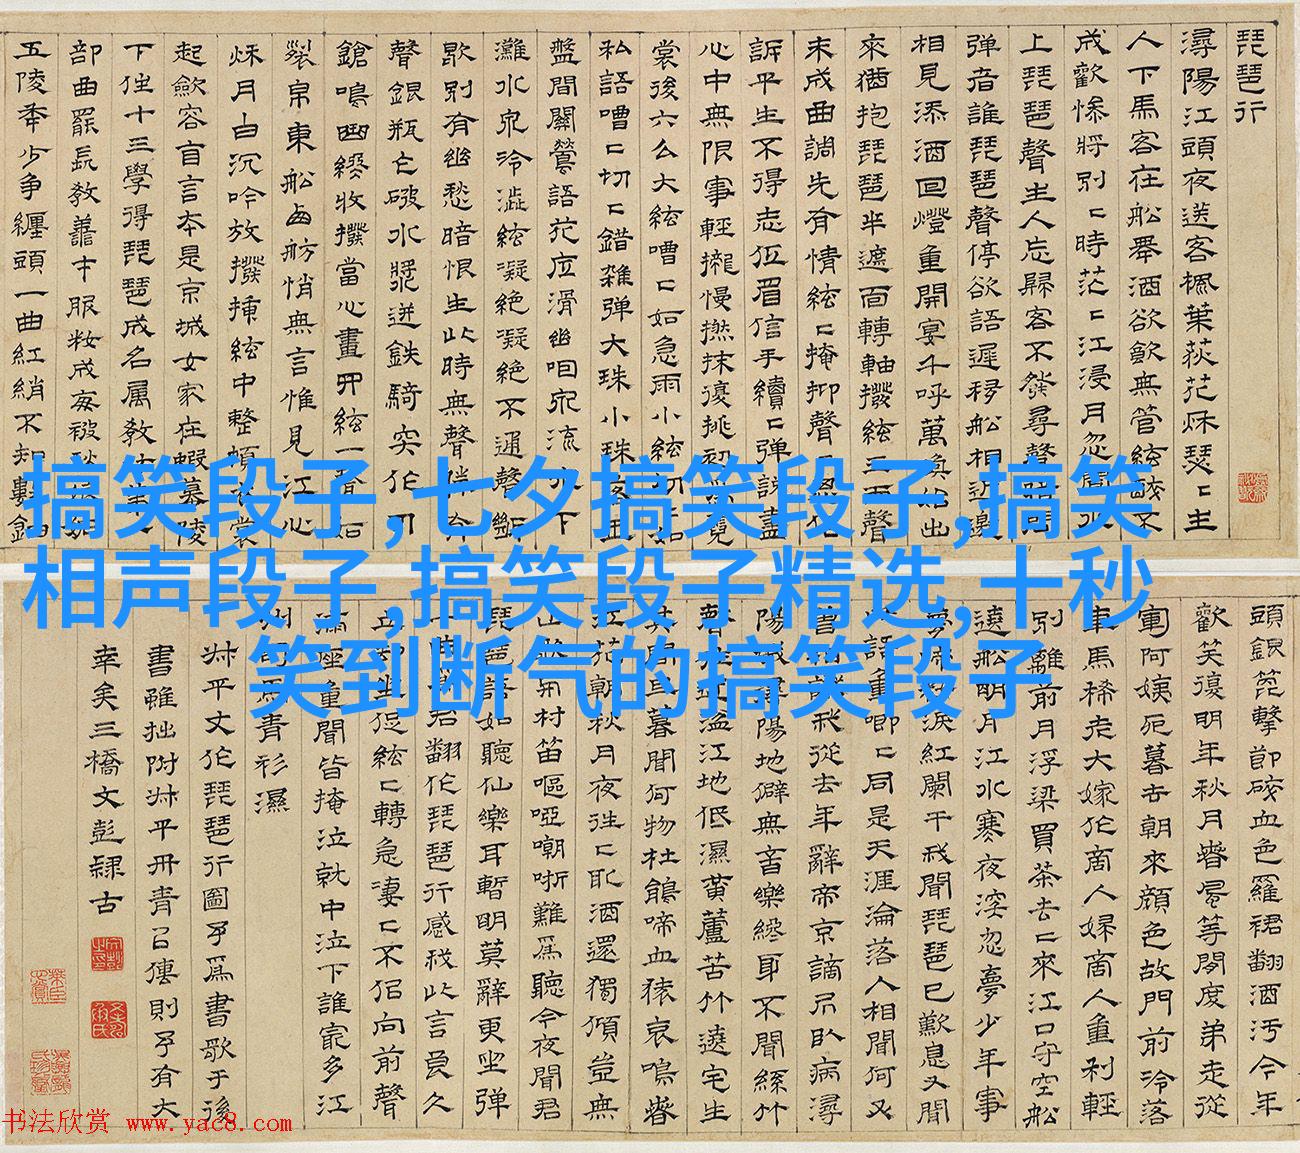 琵琶行
潯陽江頭夜送客楓葉荻花秋瑟〻主
人下馬客在船舉酒欲飲無管絃醉不
成歡慘將別〻時茫〻江浸月忽聞水
上琵琶聲主人忘歸客不發尋聲暗問
彈者誰琵琶聲停欲語遲移船相近邀
相見添酒回燈重開宴千呼萬喚始出
來猶抱琵琶半遮面轉軸撥絃三兩聲
未成曲調先有情絃〻掩抑聲
訴平生不得志低眉信手續〻彈說盡
心中無限事輕攏慢撚抹復挑初霓
裳後六么大絃嘈〻如急雨小絃切
私語嘈〻切〻錯雜彈大珠小珠落玉
盤間關鶯語花底滑幽咽泉流下
灘水泉冷澀絃凝絶凝絶不通聲漸
歇別有幽愁暗恨生此時無聲
聲銀瓶乍破水漿迸鉄騎突刀
鎗鳴曲終收撥當心畫四絃一聲如
裂帛東船西舫悄無言惟見江心
秋月白沉吟放撥插絃中整頓裳
起斂容自言本是京城女家在蝦蟇陵
下住十三學得琵琶成名属教
部曲罷長教善才服粧成每被秋
五陵年少争纏頭一曲紅綃不知數鈿
頭銀篦擊節碎血色羅裙翻酒汚今年
歡笑復明年秋月春風等閒度弟走從
軍阿姨死暮去朝來顔色故門前冷落
車馬稀老大嫁作商人婦商人重利輕
別離前月浮梁買茶去〻來江口守空船
遶船明月江水寒夜深忽夢少年事
夢啼淚紅闌干我聞琵琶已歎息又聞
語重唧〻同是天涯淪落人相聞何必
曾我從去年辭帝京謫居臥病潯
陽潯陽地僻無音樂終歲不聞絲竹
聲住近湓江地低濕黄蘆苦竹遶宅生
其間旦暮聞何物杜鵑啼血猿哀鳴春
江花朝秋月夜往〻取酒還獨傾豈無
山歌村笛嘔啞嘲哳難為聽今夜聞君
琵琶語如聽仙樂耳暫明莫辭更坐彈
一曲君翻作琵琶行感我此言良久
立坐促絃〻轉急凄〻不似向前聲
滿座重聞皆掩泣就中泣下誰寂多江
州司馬青衫濕
叔平丈作琵琶行圖予為書歌于後
書雖拙附叔平丹青以傳則予有大
幸矣三橋文彭隸古
搞笑段子,七夕搞笑段子,搞笑
相声段子,搞笑段子精选,十秒
笑到断气的搞笑段子
书法欣赏 www.yac8.com